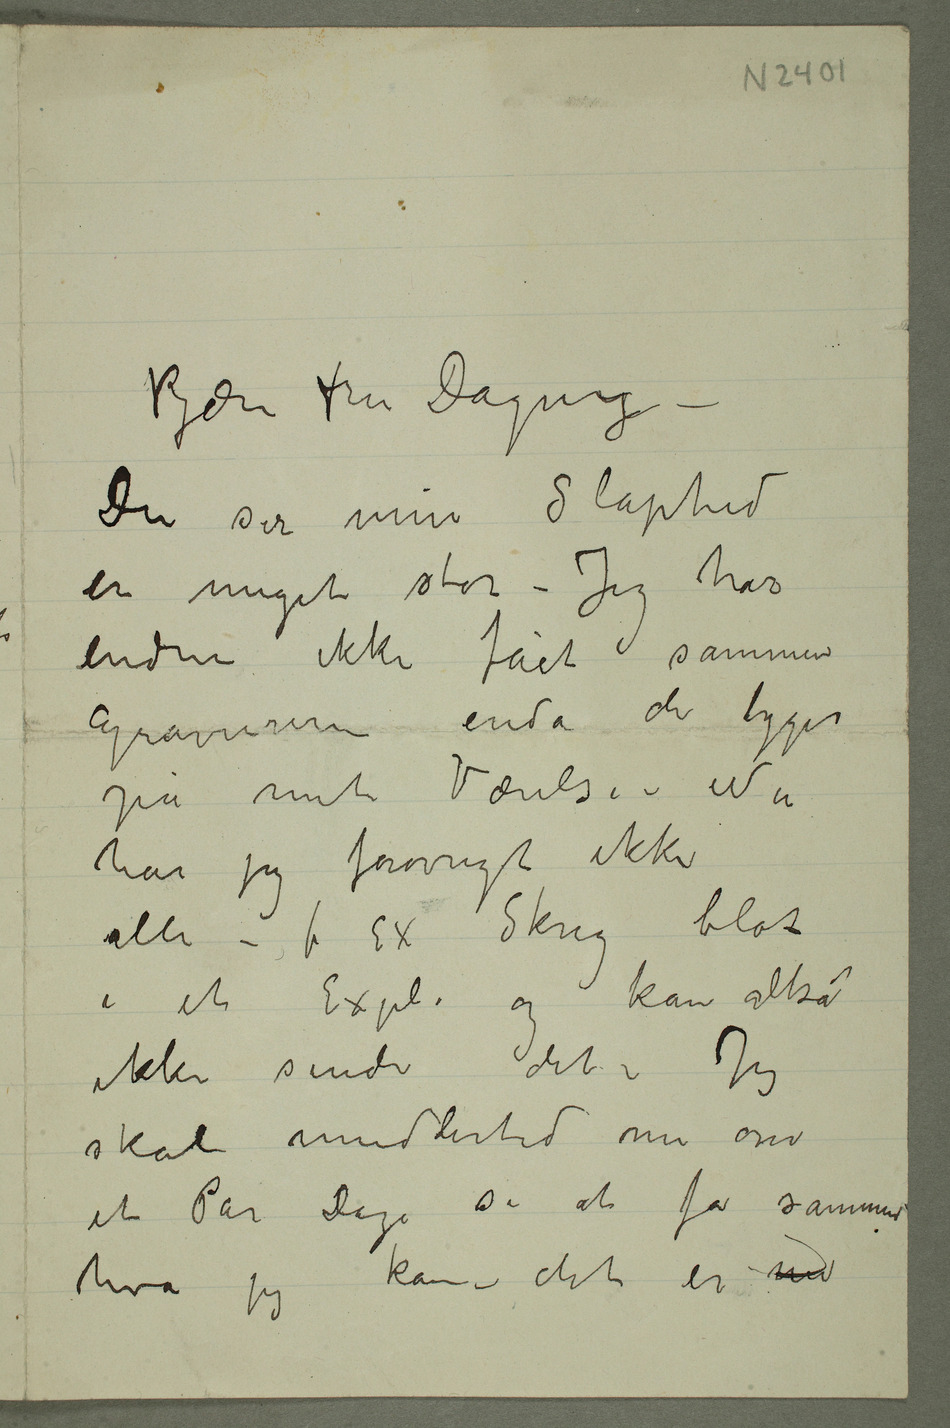 N 2401
Kjære Fru Dagny –
Du ser min Slaphed
er meget stor – Jeg har
endnu ikke fået sammen
Gravurerne enda de ligger
på mit Værelse – Nu
har jeg forøvrigt ikke
alle – f Ex Skrig blot
i et Expl. og kan altså
ikke sende det – Jeg
skal imidlertid nu om
et Par Dage se at få sammen
hva jeg kan – det er